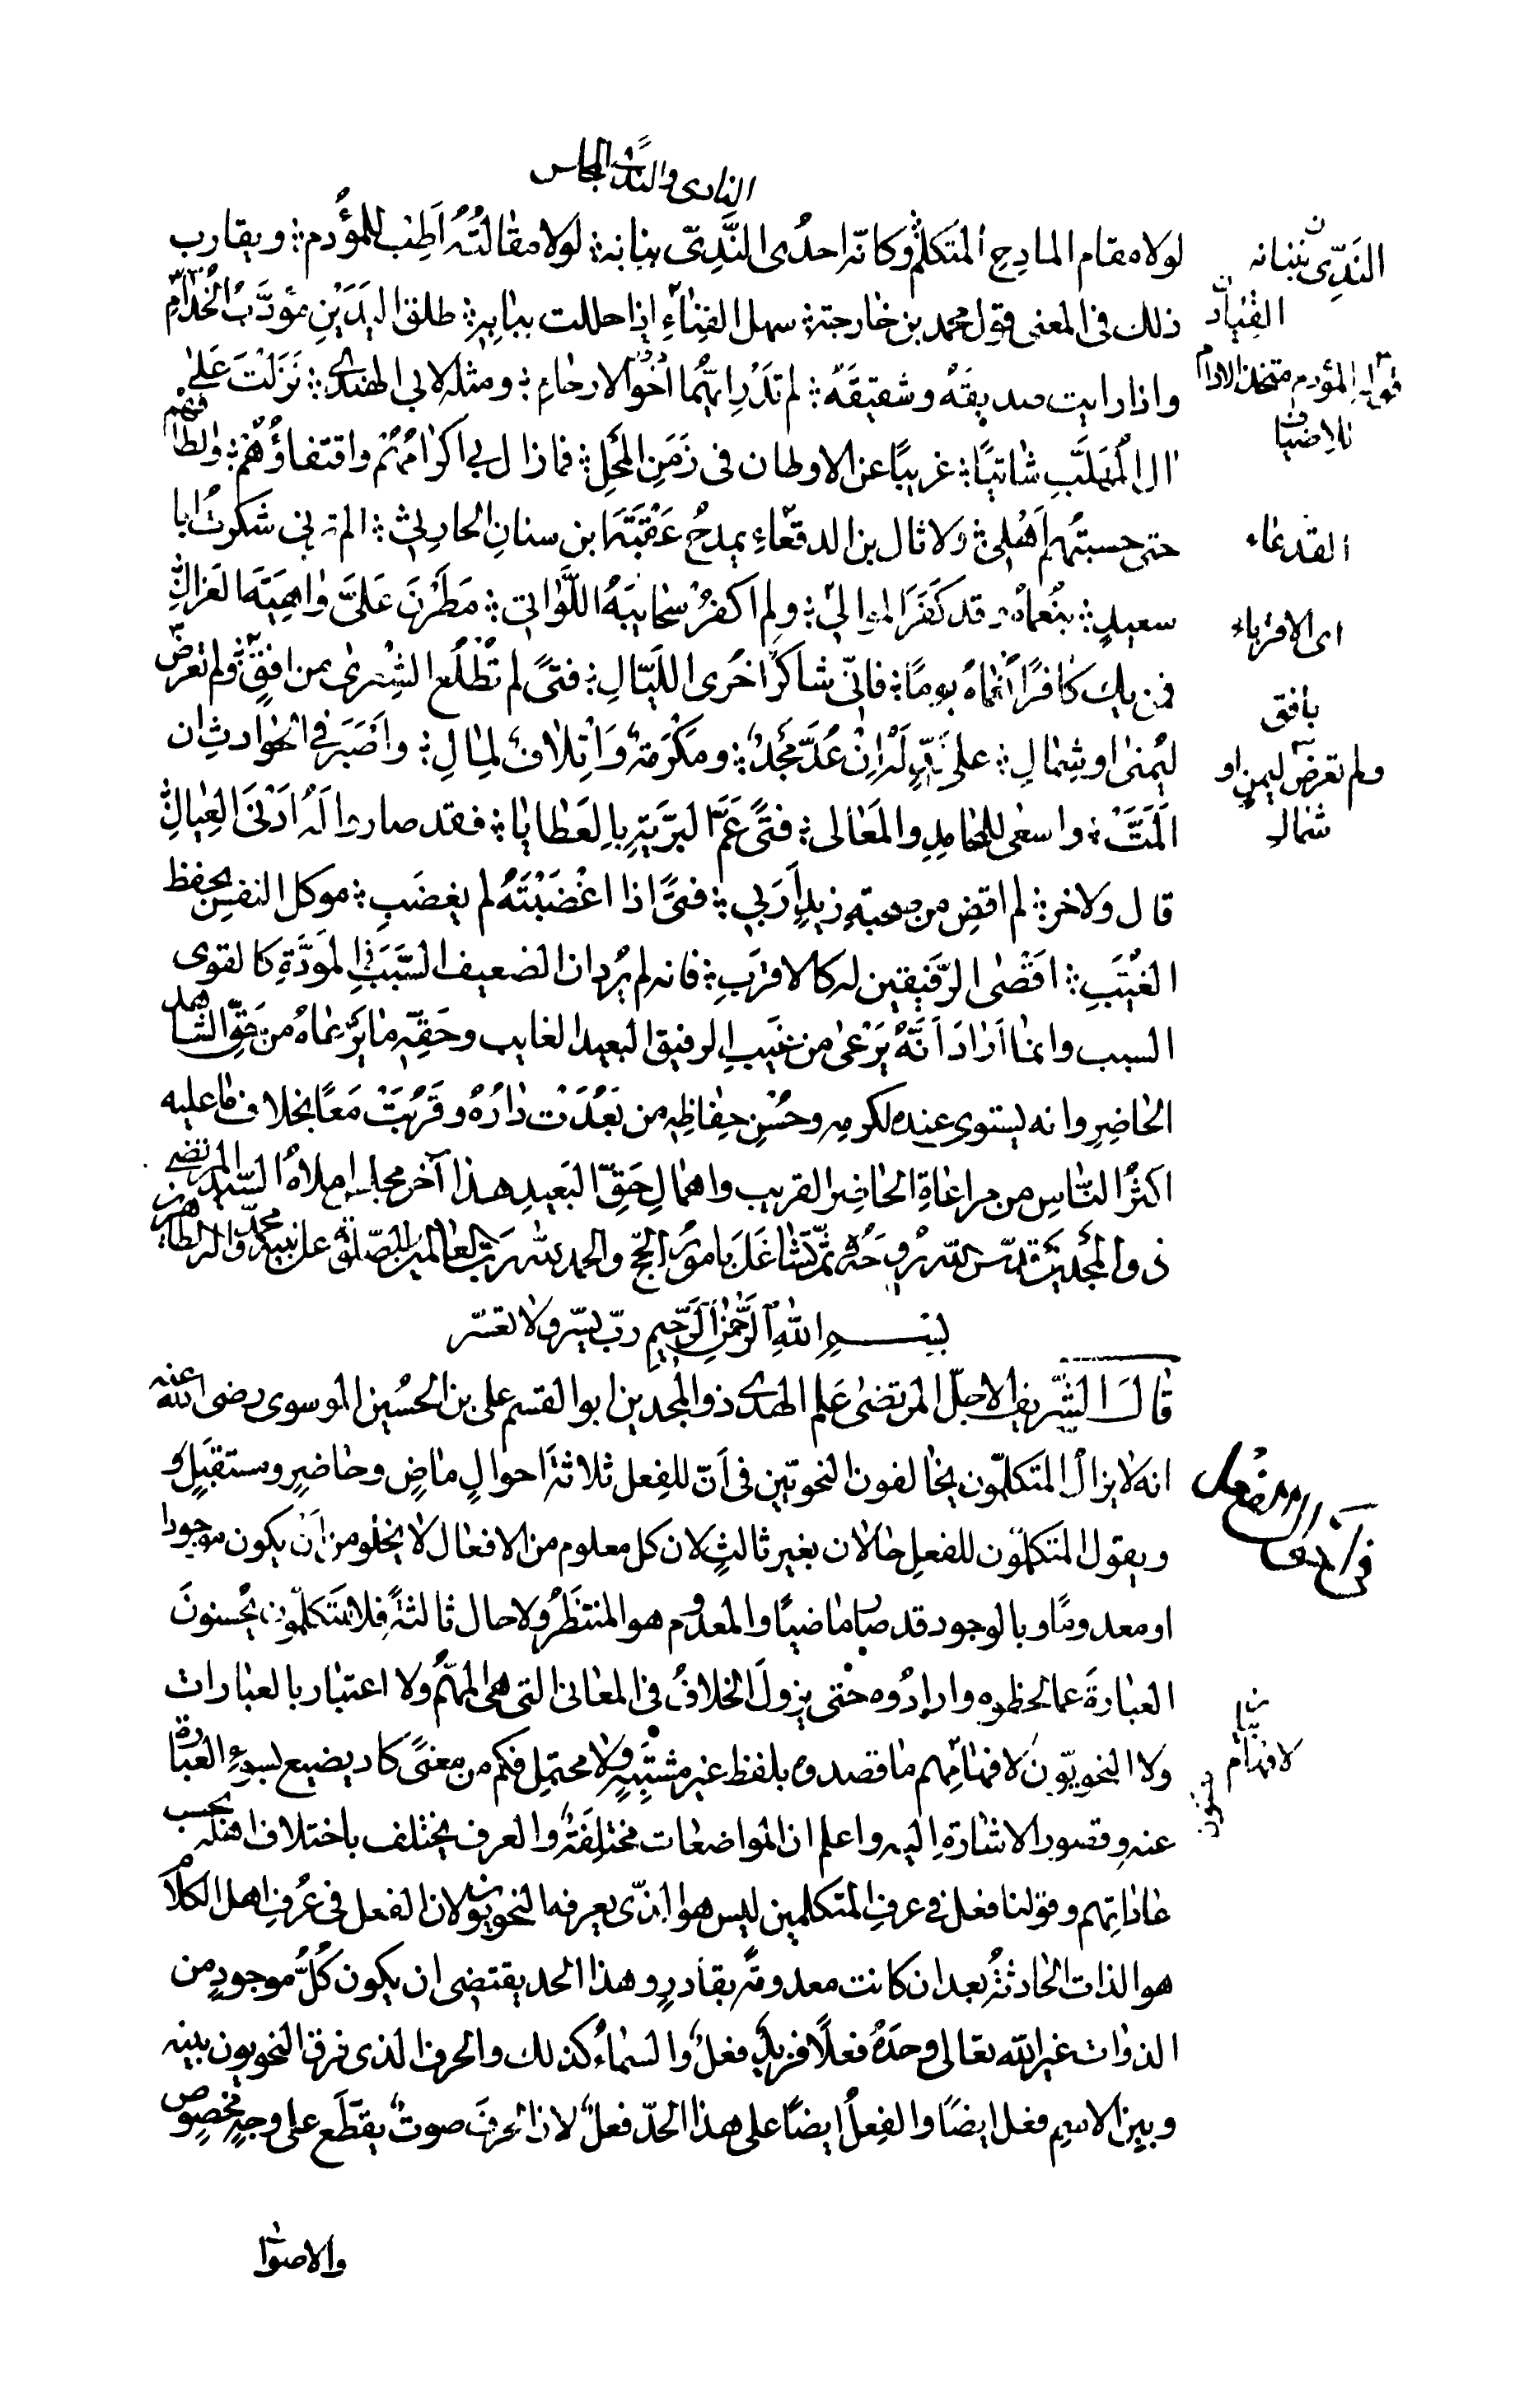 النادى والندى المجلس
لولا مقام المادح المتكلم ؛ وكانه احدى الندى ببنانه ؛ لولا مقالته اطب للمؤدم ؛ ويقارب
ذلك فى المعنى قول محمد بن خارجة ؛ سهل الفناء اذا حللت ببابه ؛ طلق اليدين مؤدب الخدام
واذا رايت صديقه وشقيقه ؛ لم تدر ايهما اخو الارحام ؛ ومثله لابى الهندى ؛ نزلت على
ال المهلب شاتيا ؛ غريبا عن الاوطان فى زمن المحل ؛ فما زال بى اكرامهم واقتفاؤهم ؛ والطافهم
حتى حسبتهم اهلى ؛ ولاثال بن الدقعاء يمدح عقبة بن سنان الحارثى ؛ الم ترنى شكرت ابا
سعيد ؛ بنعماه وقد كفر الموالى ؛ ولم اكفر سحايبه اللواتى ؛ مطرن على واهية العزالى
فمن يك كافرا نعماه يوما ؛ فانى شاكر اخرى الليال ؛ فتى لم تطلع الشعرى من افق ؛ ولم تعرض
ليمنى او شمال ؛ على ند له ان عد مجد ؛ ومكرمة واتلاف لمال ؛ واصبر فى الحوادث ان
المت ؛ واسعى للمحامد والمعالى ؛ فتى عم البرية بالعطايا ؛ فقد صاروا له ادنى العيال
قال ولاخر ؛ لم اقض من صحبة زيد اربى ؛ فتى اذا اغضبته لم يغضب ؛ موكل النفس بحفظ
الغيب ؛ اقصى الرفيقين له كالاقرب ؛ فانه لم يرد ان الضعيف السبب فى المودة كالقوى
السبب وانما اراد انه يرعى من غيب الرفيق البعيد الغايب وحقه ما يرعاه من حق الشاهد
الحاضر وانه يستوى عنده لكرمه وحسن حفاظه من بعدت داره وقربت معا بخلاف ما عليه
اكثر الناس من مراعاة الحاضر القريب واهمال حق البعيد هذا آخر مجلس املاه السيد المرتضى
ذو المجدين قدس الله روحه ثم تشاغل بامور الحج والحمد لله رب العالمين والصلوة على نبيه محمد واله الطاهرين
بسم الله الرحمن الرحيم رب يسر ولا تعسر
قال الشريف الاجل المرتضى علم الهدى ذو المجدين ابو القسم على بن الحسين الموسوى رضى الله عنه
انه لا يزال المتكلمون يخالفون النحويين فى ان للفعل ثلاثة احوال ماض وحاضر ومستقبل و
ويقول المتكلمون للفعل حالان بغير ثالث لان كل معلوم من الافعال لا يخلو من ان يكون موجودا
او معدوما وبالوجود قد صار ماضيا والمعدوم هو المنتظر ولا حال ثالثة فلا المتكلمون يحسنون
العبارة عما لحظوه وارادوه حتى يزول الخلاف فى المعانى التى هى المهم ولا اعتبار بالعبارات
ولا النحويون لافهامهم ما قصدوه بلفظ غير مشتبه ولا محتمل فكم من معنى كاد يضيع لسوء العبارة
عنه وقصور الاشارة اليه واعلم ان المواضعات مختلفة والعرف يختلف باختلاف اهله بحسب
عاداتهم وقولنا فعل فى عرف المتكلمين ليس هو الذى يعرفه النحويون لان الفعل فى عرف اهل الكلام
هو الذات الحادثة بعد ان كانت معدومة بقادر وهذا الحد يقتضى ان يكون كل موجود من
الذوات غير الله تعالى وحده فعلا فزيد فعل والسماء كذلك والحرف الذى فرق النحويون بينه
وبين الاسم فعل ايضا والفعل ايضا على هذا الحد فعل لان الحرف صوت يقطع على وجه مخصوص
والاصوا
الندى ببنانه
قوله المؤدم متخذ الادام
للاضياف
القدعاء
اى الاقرباء
بافق
ولم تعرض ليمن او
شمال
لافهام